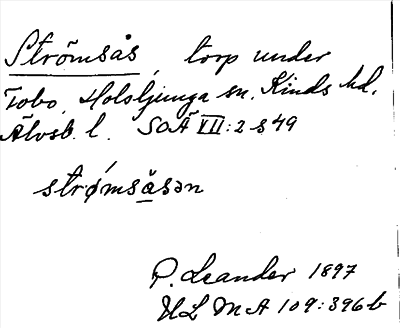 Strömsås, torp under
Tobo, Holsljunga sn. Kinds hd.
Älvsb. l. SOÄ VII:2 s 49
strǿmsåsən
P. Leander 1897
ULMA 109:396b